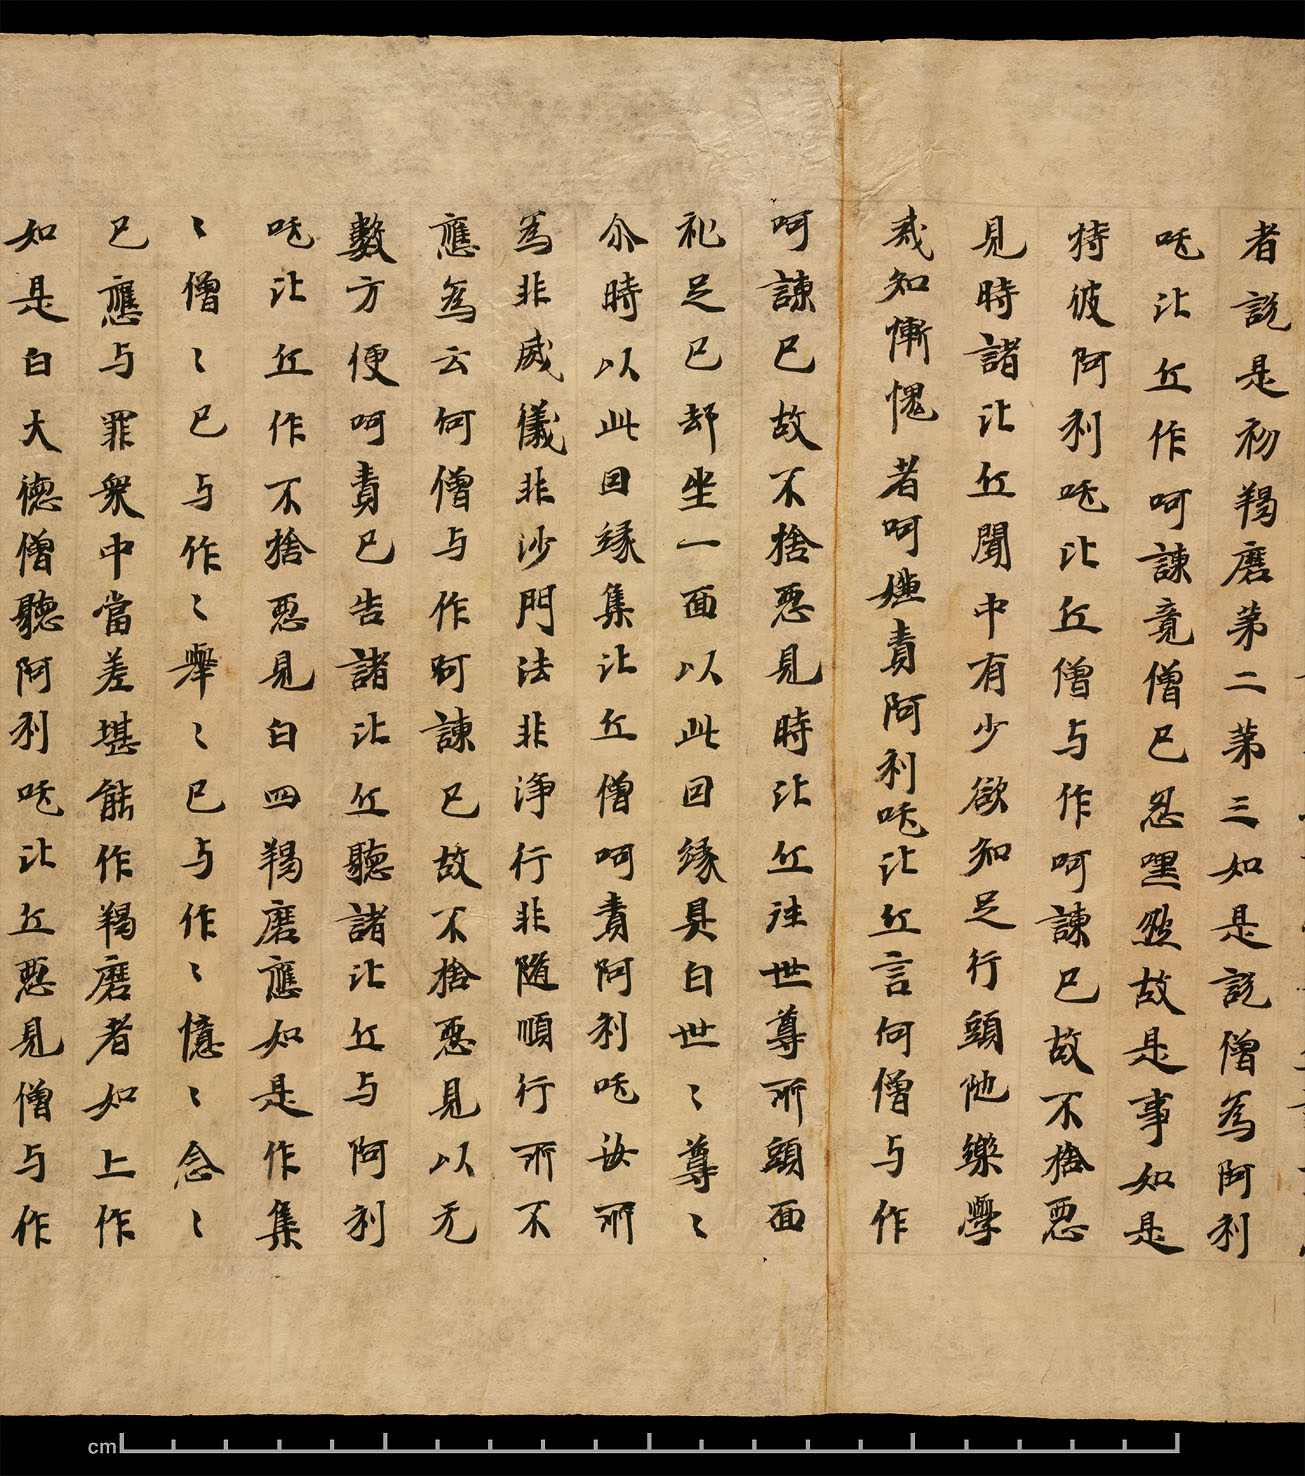 者説是初羯磨第二第三如是説僧為阿利
吒比丘作呵諫竟僧已忍嘿然故是事如是
持彼阿利吒比丘僧与作呵諫已故不捨惡
見時諸比丘聞中有少欲知足行頭陁樂學
戒知慚愧者呵嫌責阿利吒比丘言何僧与作
呵諫已故不捨惡見時比丘往世尊所頭面
礼足已却坐一面以此因緣具白世〻尊〻
尒時以此因緣集比丘僧呵責阿利吒汝所
為非威儀非沙門法非淨行非隨順行所不
應為云何僧与作呵諫已故不捨惡見以无
數方便呵責已告諸比丘聽諸比丘与阿利
吒比丘作不捨惡見白四羯磨應如是作集
〻僧〻已与作〻舉〻已与作〻憶〻念〻
已應与罪衆中當差堪能作羯磨者如上作
如是白大德僧聽阿利吒比丘惡見僧与作